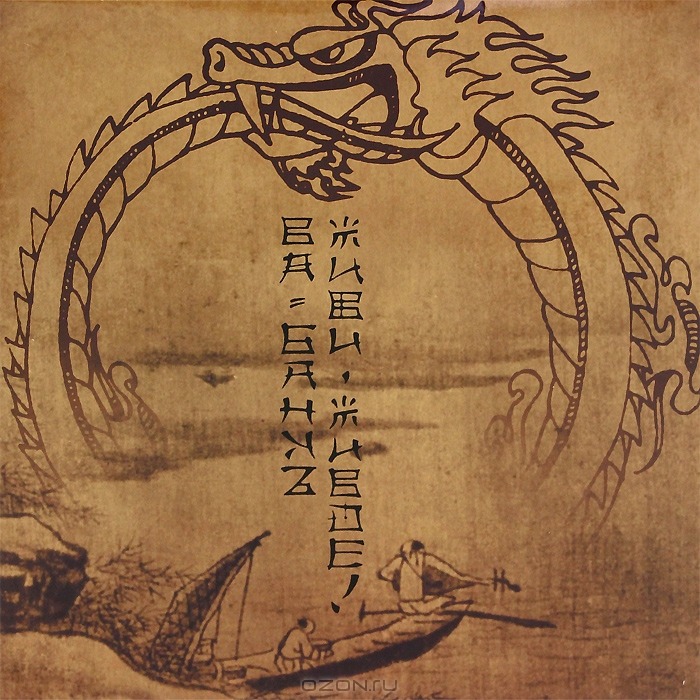 ВА=БАНКЪ
ЖИВИ, ЖИВОЕ!
OZON.ru